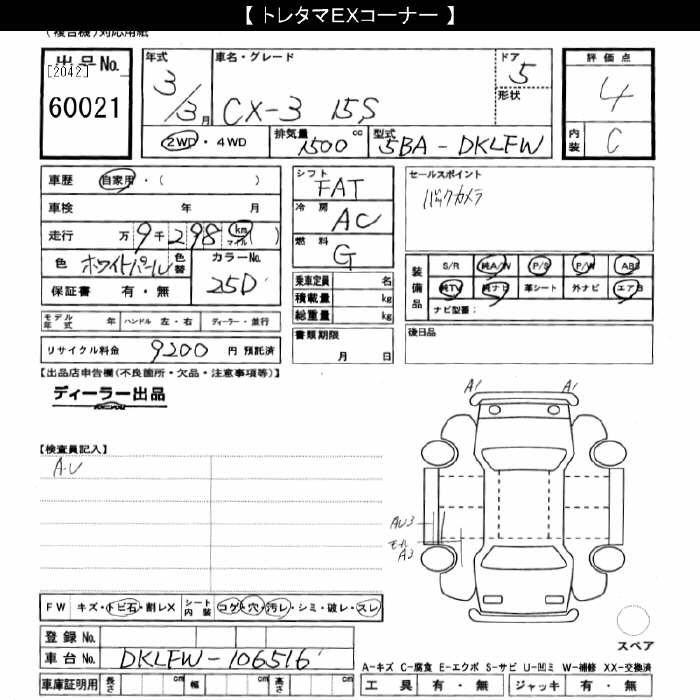 【 トレタマEXコーナー 】
(複合機)対応用紙
出品No. [2042] 60021
年式 3/3月
車名・グレード CX-3 15S
ドア 5
形状
評価点 4
内装 C
2WD・4WD
排気量 1500 cc
型式 5BA-DKLFW
車歴 自家用・( )
車検 年 月
走行 万 9千298 km マイル ( )
色 ホワイトパール 色替
カラーNo. 25D
保証書 有・無
モデル年式 年 ハンドル 左・右 ディーラー・並行
リサイクル料金 9200 円 預託済
シフト FAT
冷房 AC
燃料 G
乗車定員 名
積載量 kg
総重量 kg
書類期限
月 日
セールスポイント
バックカメラ
装備品
S/R 純A/W P/S P/W ABS
純TV 純ナビ 革シート 外ナビ エアB
ナビ型番:
後日品
【出品店申告欄(不良箇所・欠品・注意事項等)】
ディーラー出品
【検査員記入】
A・U
A1 A1
AU3
モール
A3
FW キズ・トビ石・割レX シート内装 コゲ・穴・汚レ・シミ・破レ・スレ
登録No.
車台No. DKLFW-106516
車庫証明用 長さ cm 幅 cm 高さ cm
スペア
A-キズ C-腐食 E-エクボ S-サビ U-凹ミ W-補修 XX-交換済
工具 有・無 ジャッキ 有・無